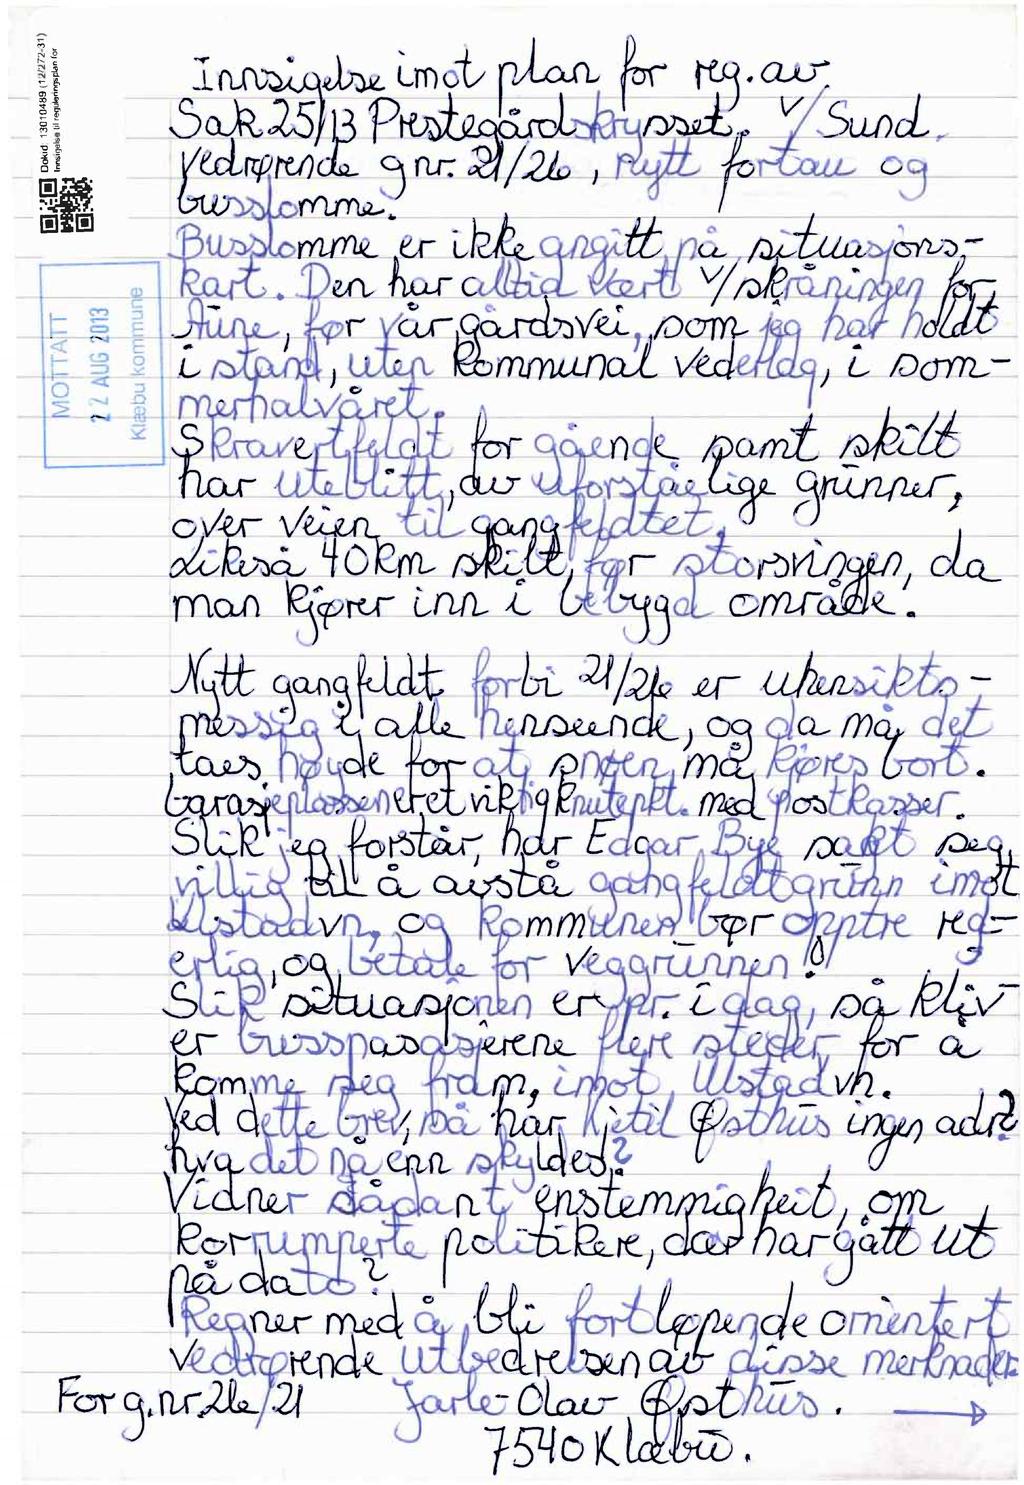 DokId: 13010489 (12/272-31)
Innsigelse til reguleringsplan for
MOTTATT
22 AUG 2013
Klæbu kommune
Innsigelse imot plan for reg. av
Sak 25/13 Prestegårdskrysset. v/Sund.
Vedrørende gnr. 21/26, nytt fortau og
busslomme.
Busslomme er ikke angitt på situasjons-
kart. Den har alltid vært v/skråningen for
Aune, før vår gårdsvei, som jeg har holdt
i stand, uten kommunal vederlag, i som-
merhalvåret.
Skravertfeldt for gående samt skilt
har uteblitt, av uforståelige grunner,
over veien til gangfeldtet.
Likeså 40km skilt, før storsvingen, da
man kjører inn i bebygd område.
Nytt gangfeldt forbi 21/26 er uhensikts-
messig i alle henseende, og da må det
taes høyde for at snøen må kjøres bort.
Garasjeplassen er et viktig knutepkt. med postkasser.
Slik jeg forstår, har Edgar Bye sagt seg
villig til å avstå gangfeldtgrunn imot
Ulstadvn, og kommunen bør opptre reg-
erlig, og betale for veggrunnen!
Slik situasjonen er pr. i dag, så kliv-
er busspasasjerene flere steder, for å
komme seg fram, imot Ulstadvn.
Ved dette brev, så har Kjetil Østhus ingen adr?
hva det nå enn skyldes?
Vidner sådant enstemmigheit, om
korrumperte politikere, der har gått ut
på dato?
Regner med å bli fortløpende orientert
vedrørende utbedrelsen av disse merknader.
For g.nr. 26/21 Jarle-Olav Østhus.
7540 Klæbu.